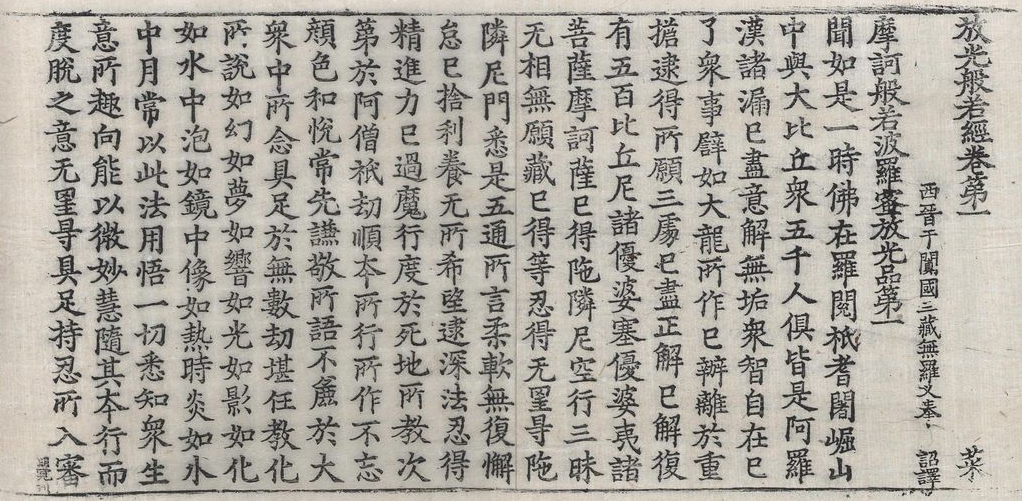 放光般若經卷第一
西晉于闐國三藏無羅叉奉 詔譯
摩訶般若波羅蜜放光品第一
聞如是一時佛在羅閱祇耆闍崛山
中與大比丘衆五千人俱皆是阿羅
漢諸漏已盡意解無垢衆智自在已
了衆事譬如大龍所作已辦離於重
擔逮得所願三處已盡正解已解復
有五百比丘尼諸優婆塞優婆夷諸
菩薩摩訶薩已得陁隣尼空行三昧
无相無願藏已得等忍得无罣㝵陁
隣尼門悉是五通所言柔軟無復懈
怠已捨利養无所希望逮深法忍得
精進力已過魔行度於死地所教次
第於阿僧祇劫順本所行所作不忘
顔色和悅常先謙敬所語不麁於大
衆中所念具足於無數劫堪任教化
所說如幻如夢如響如光如影如化
如水中泡如鏡中像如熱時炎如水
中月常以此法用悟一切悉知衆生
意所趣向能以微妙慧隨其本行而
度脫之意无罣㝵具足持忍所入審